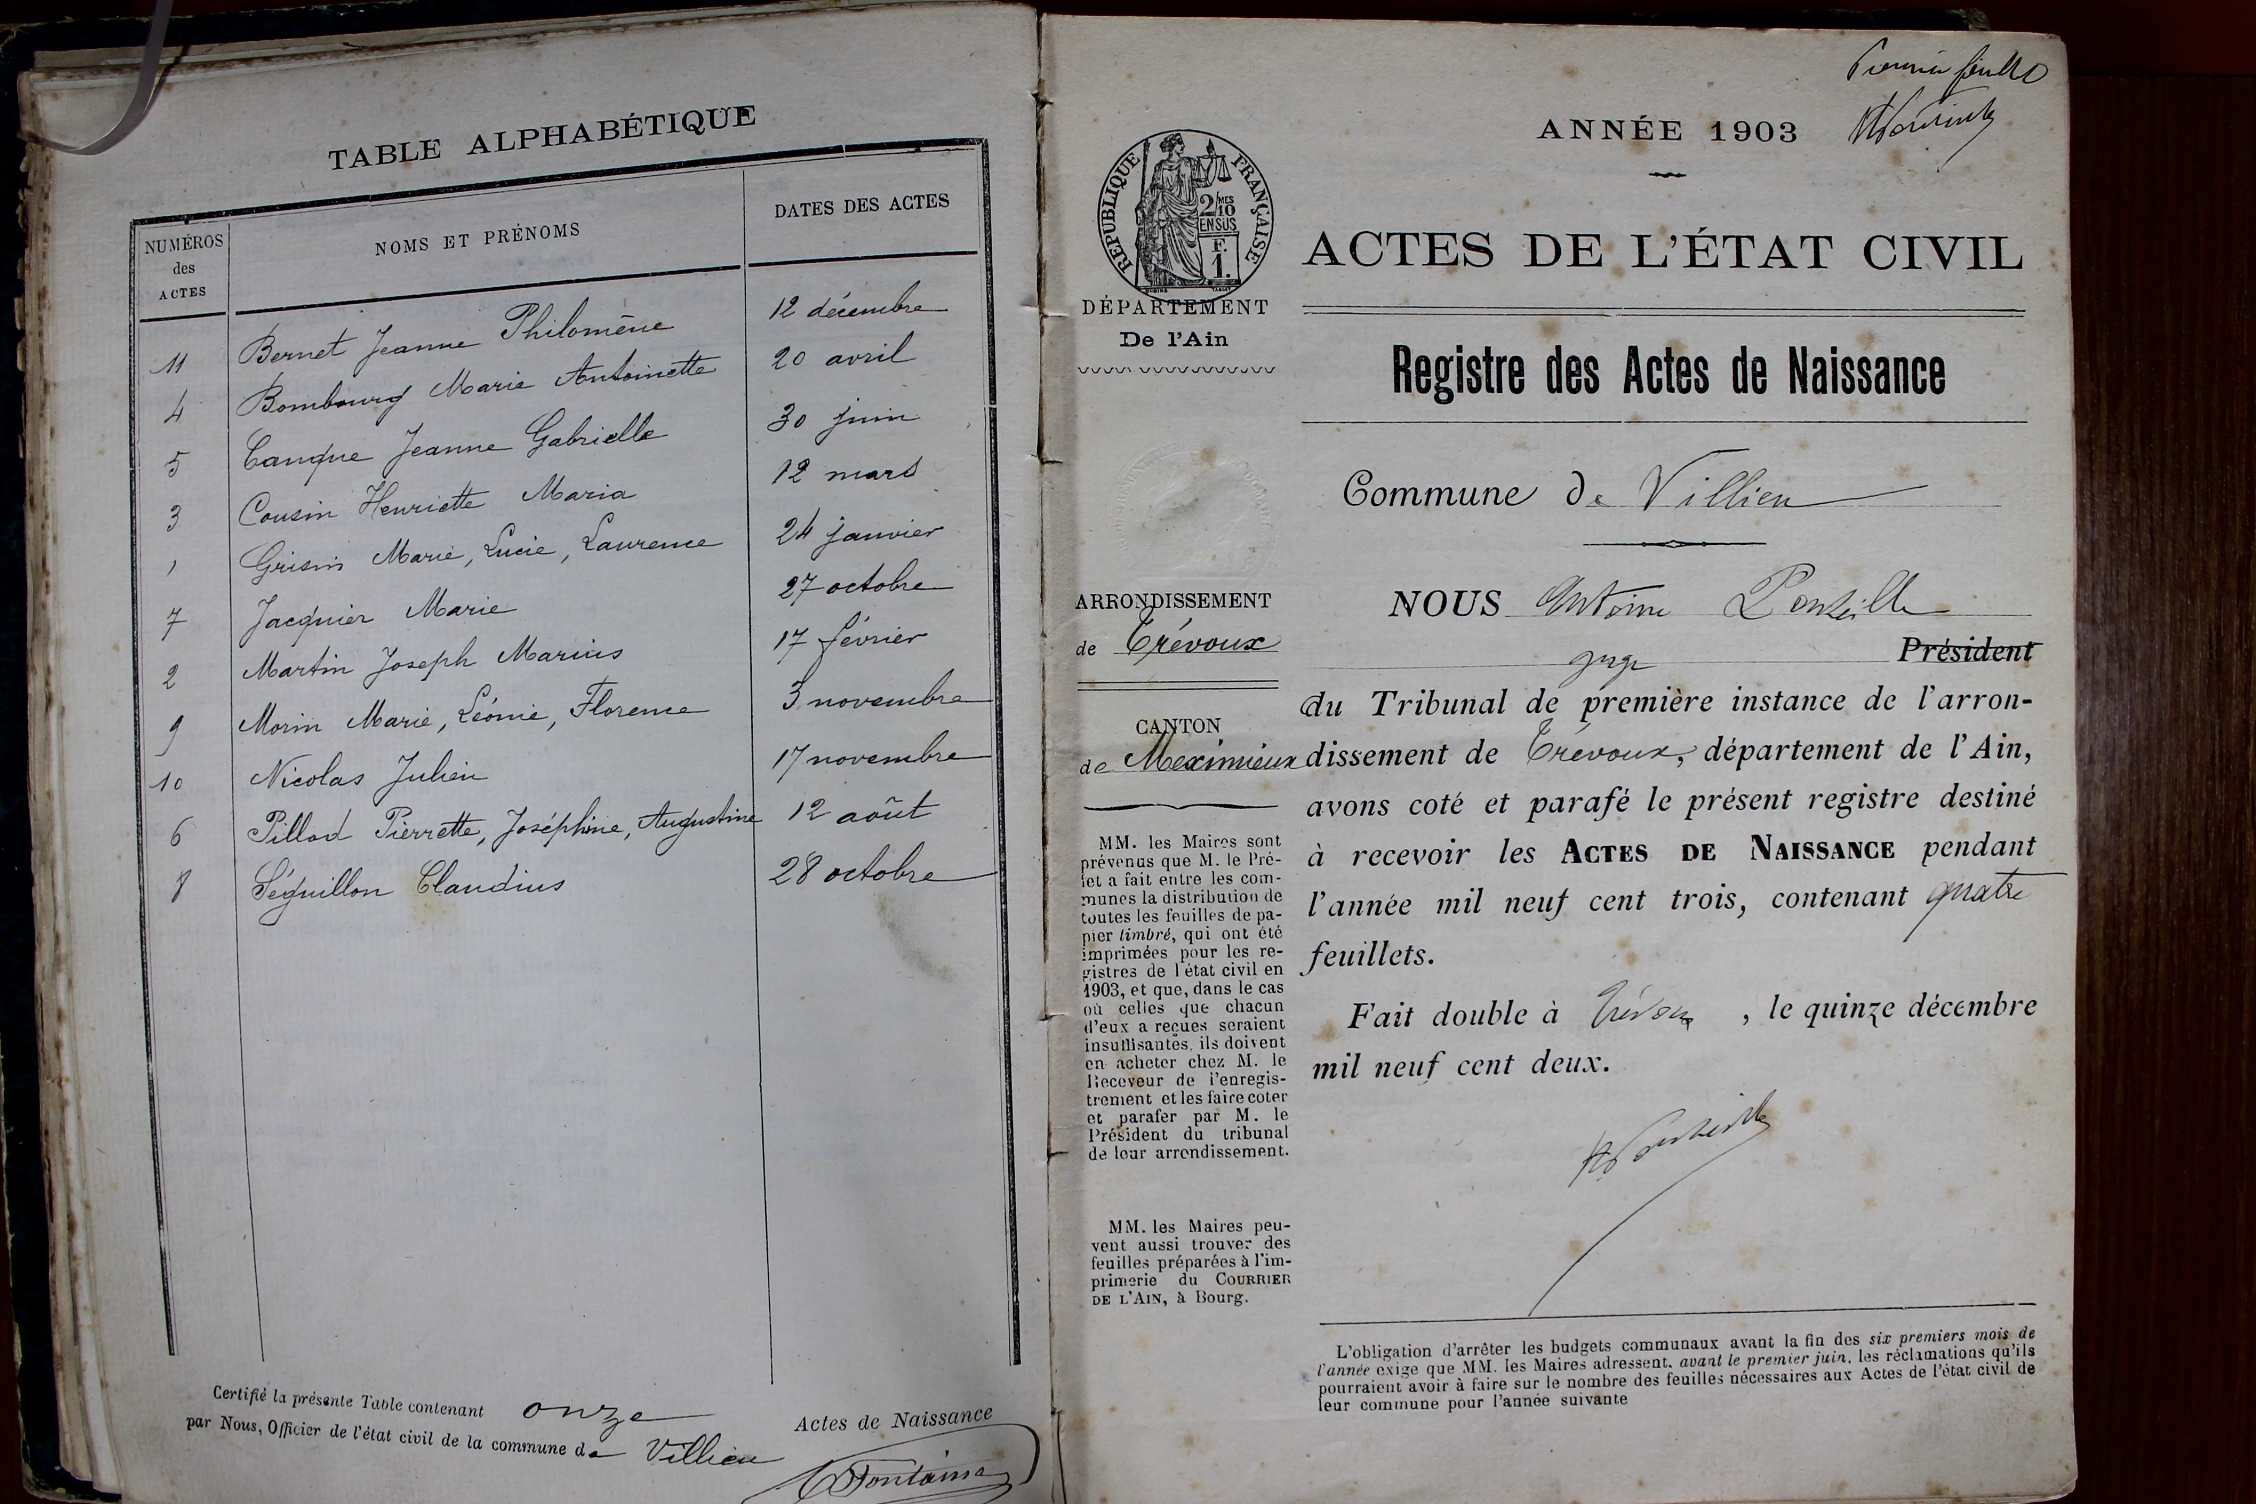 TABLE ALPHABÉTIQUE
NUMÉROS des ACTES
NOMS ET PRÉNOMS
DATES DES ACTES
11 Bernet Jeanne Philomène 12 décembre
4 Bombourg Marie Antoinette 20 avril
5 Canque Jeanne Gabrielle 30 juin
3 Cousin Henriette Maria 12 mars
1 Grisin Marie, Lucie, Laurence 24 janvier
7 Jacquier Marie 27 octobre
2 Martin Joseph Marius 17 février
9 Morin Marie, Léonie, Florence 3 novembre
10 Nicolas Julien 17 novembre
6 Pillod Pierrette, Joséphine, Augustine 12 août
8 Séguillon Claudius 28 octobre
Certifié la présente Table contenant onze Actes de Naissance
par Nous, Officier de l'état civil de la commune de Villieu
Fontaine
Premier feuillet
ANNÉE 1903
RÉPUBLIQUE FRANÇAISE
2/10 MES
EN SUS
F.
1.
DÉPARTEMENT
De l'Ain
ARRONDISSEMENT
de Trévoux
CANTON
de Meximieux
MM. les Maires sont
prévenus que M. le Pré-
fet a fait entre les com-
munes la distribution de
toutes les feuilles de pa-
pier timbré, qui ont été
imprimées pour les re-
gistres de l'état civil en
1903, et que, dans le cas
où celles que chacun
d'eux a reçues seraient
insuffisantes, ils doivent
en acheter chez M. le
Receveur de l'enregis-
trement et les faire coter
et parafer par M. le
Président du tribunal
de leur arrondissement.
MM. les Maires peu-
vent aussi trouver des
feuilles préparées à l'im-
primerie du COURRIER
DE L'AIN, à Bourg.
ACTES DE L'ÉTAT CIVIL
Registre des Actes de Naissance
Commune de Villieu
NOUS Antoine
juge Président
du Tribunal de première instance de l'arron-
dissement de Trévoux, département de l'Ain,
avons coté et parafé le présent registre destiné
à recevoir les ACTES DE NAISSANCE pendant
l'année mil neuf cent trois, contenant quatre
feuillets.
Fait double à Trévoux, le quinze décembre
mil neuf cent deux.
L'obligation d'arrêter les budgets communaux avant la fin des six premiers mois de
l'année exige que MM. les Maires adressent, avant le premier juin, les réclamations qu'ils
pourraient avoir à faire sur le nombre des feuilles nécessaires aux Actes de l'état civil de
leur commune pour l'année suivante